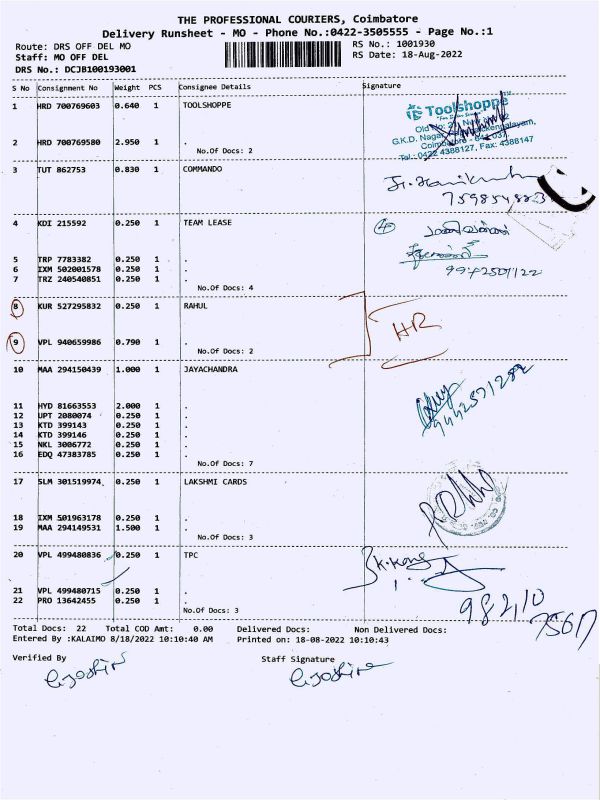 THE PROFESSIONAL COURIERS, Coimbatore
Delivery Runsheet - MO - Phone No.:0422-3505555 - Page No.:1
Route: DRS OFF DEL MO RS No.: 1001930
Staff: MO OFF DEL RS Date: 18-Aug-2022
DRS No.: DCJB100193001
S No Consignment No Weight PCS Consignee Details Signature
1 HRD 700769603 0.640 1 TOOLSHOPPE
Toolshoppe
Old No: 2
G.K.D. Nagar
Coimbatore - 641 037
Tel.: 0422 4388127, Fax: 4388147
2 HRD 700769580 2.950 1 .
No.Of Docs: 2
3 TUT 862753 0.830 1 COMMANDO
4 KDI 215592 0.250 1 TEAM LEASE
4
5 TRP 7783382 0.250 1 .
6 IXM 502001578 0.250 1 .
7 TRZ 240540851 0.250 1 .
No.Of Docs: 4
8 KUR 527295832 0.250 1 RAHUL
HR
9 VPL 940659986 0.790 1 .
No.Of Docs: 2
10 MAA 294150439 1.000 1 JAYACHANDRA
11 HYD 81663553 2.000 1 .
12 UPT 2080074 0.250 1 .
13 KTD 399143 0.250 1 .
14 KTD 399146 0.250 1 .
15 NKL 3006772 0.250 1 .
16 EDQ 47383785 0.250 1 .
No.Of Docs: 7
17 SLM 301519974 0.250 1 LAKSHMI CARDS
18 IXM 501963178 0.250 1 .
19 MAA 294149531 1.500 1 .
No.Of Docs: 3
20 VPL 499480836 0.250 1 TPC
21 VPL 499480715 0.250 1 .
22 PRO 13642455 0.250 1 .
No.Of Docs: 3
Total Docs: 22 Total COD Amt: 0.00 Delivered Docs: Non Delivered Docs:
Entered By :KALAIMO 8/18/2022 10:10:40 AM Printed on: 18-08-2022 10:10:43
Verified By Staff Signature